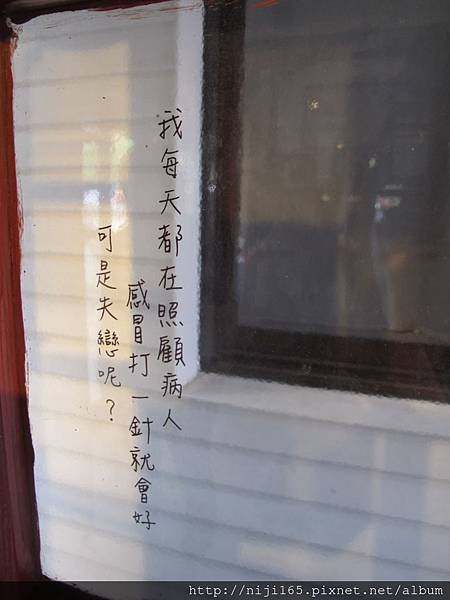 我每天都在照顧病人
感冒打一針就會好
可是失戀呢？
http://niji165.pixnet.net/album